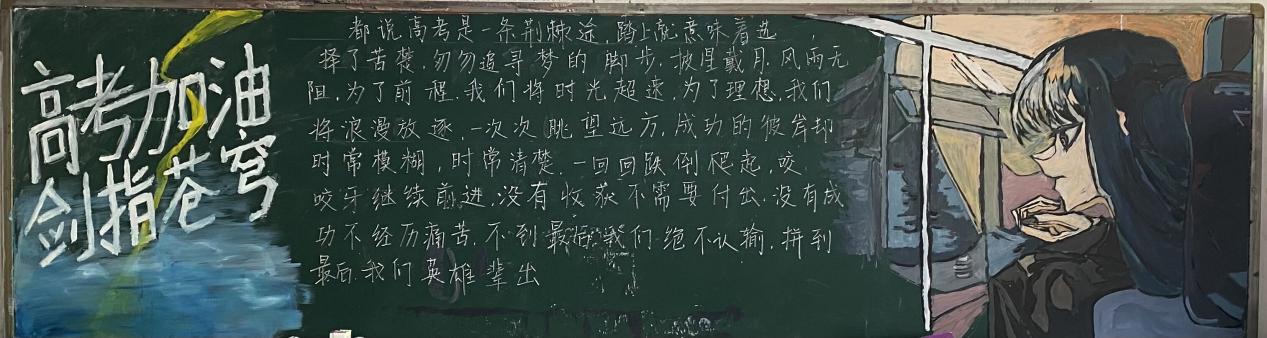 高考加油
剑指苍穹
都说高考是一条荆棘途，踏上就意味着选
择了苦楚，匆匆追寻梦的脚步，披星戴月，风雨无
阻，为了前程，我们将时光超速，为了理想，我们
将浪漫放逐，一次次眺望远方，成功的彼岸却
时常模糊，时常清楚，一回回跌倒爬起，咬
咬牙继续前进，没有收获不需要付出，没有成
功不经历痛苦，不到最后我们绝不认输，拼到
最后我们英雄辈出